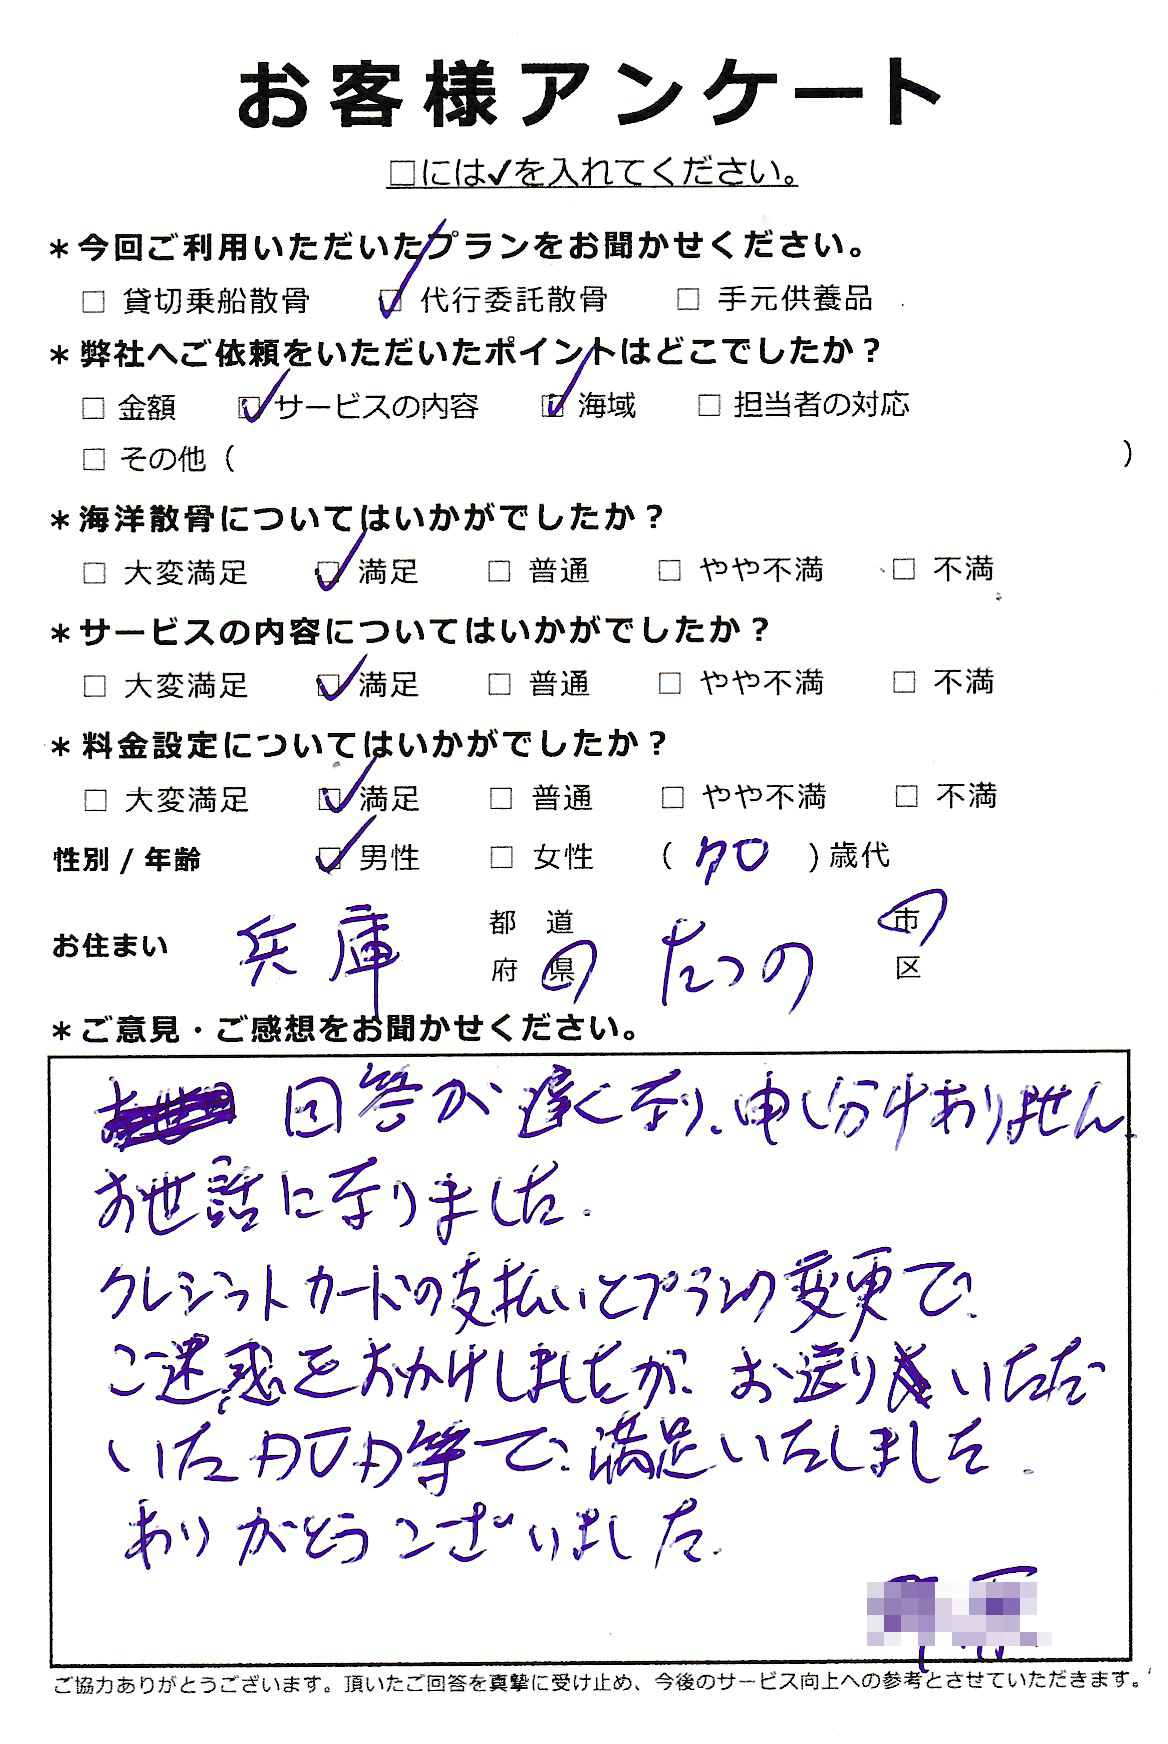 お客様アンケート
□には✓を入れてください。
＊今回ご利用いただいたプランをお聞かせください。
□ 貸切乗船散骨 ☑ 代行委託散骨 □ 手元供養品
＊弊社へご依頼をいただいたポイントはどこでしたか？
□ 金額 ☑ サービスの内容 ☑ 海域 □ 担当者の対応
□ その他（ ）
＊海洋散骨についてはいかがでしたか？
□ 大変満足 ☑ 満足 □ 普通 □ やや不満 □ 不満
＊サービスの内容についてはいかがでしたか？
□ 大変満足 ☑ 満足 □ 普通 □ やや不満 □ 不満
＊料金設定についてはいかがでしたか？
□ 大変満足 ☑ 満足 □ 普通 □ やや不満 □ 不満
性別 / 年齢 ☑ 男性 □ 女性 （ 70 ）歳代
お住まい 兵庫 都 道 府 県 たつの 市 区
＊ご意見・ご感想をお聞かせください。
回答が遅くなり、申し分けありません.
お世話になりました.
クレジットカードの支払いとプランの変更で、
ご迷惑をおかけしましたが、お送りいただ
いたDVD等で、満足いたしました.
ありがとうございました.
ご協力ありがとうございます。頂いたご回答を真摯に受け止め、今後のサービス向上への参考とさせていただきます。